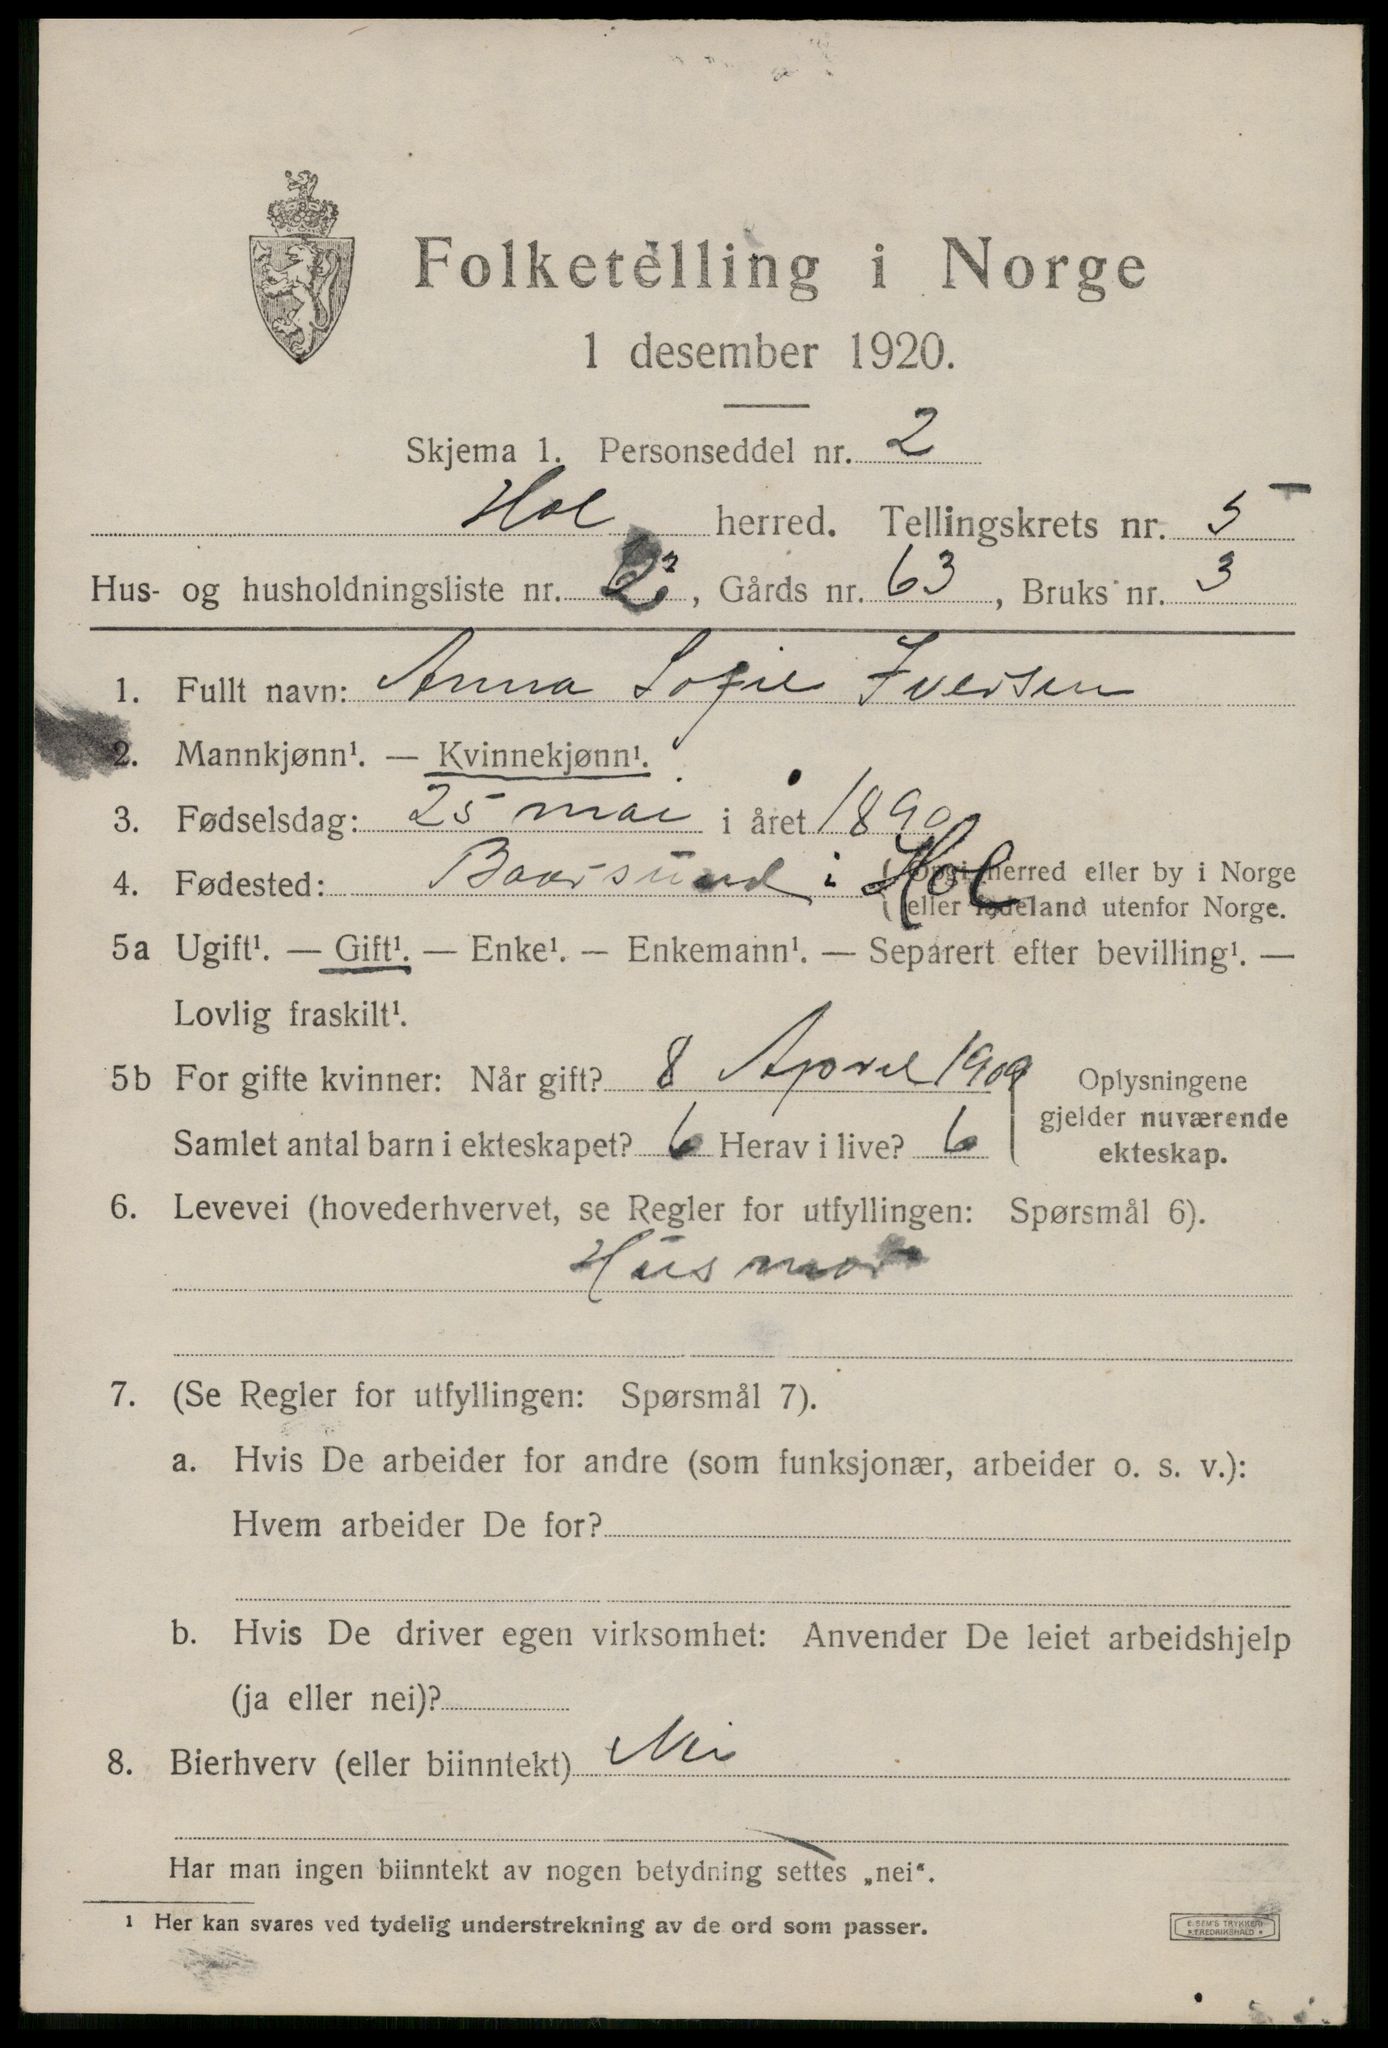 Folketelling i Norge
1 desember 1920.
Skjema 1. Personseddel nr. 2
Hol herred. Tellingskrets nr. 5
Hus- og husholdningsliste nr. 2, Gårds nr. 63, Bruks nr. 3
1. Fullt navn: Anna Sofie Iversen
2. Mannkjønn¹. — Kvinnekjønn¹.
3. Fødselsdag: 25 mai i året 1890
4. Fødested: Baarsund i Hol (Opgi herred eller by i Norge
eller fødeland utenfor Norge.
5a Ugift¹. — Gift¹. — Enke¹. — Enkemann¹. — Separert efter bevilling¹. —
Lovlig fraskilt¹.
5b For gifte kvinner: Når gift? 8 April 1909
Samlet antal barn i ekteskapet? 6 Herav i live? 6
Oplysningene
gjelder nuværende
ekteskap.
6. Levevei (hovederhvervet, se Regler for utfyllingen: Spørsmål 6).
Husmor
7. (Se Regler for utfyllingen: Spørsmål 7).
a. Hvis De arbeider for andre (som funksjonær, arbeider o. s. v.):
Hvem arbeider De for?
b. Hvis De driver egen virksomhet: Anvender De leiet arbeidshjelp
(ja eller nei)?
8. Bierhverv (eller biinntekt) Nei
Har man ingen biinntekt av nogen betydning settes „nei“.
1 Her kan svares ved tydelig understrekning av de ord som passer.
E. SEM'S TRYKKERI
FREDRIKSHALD